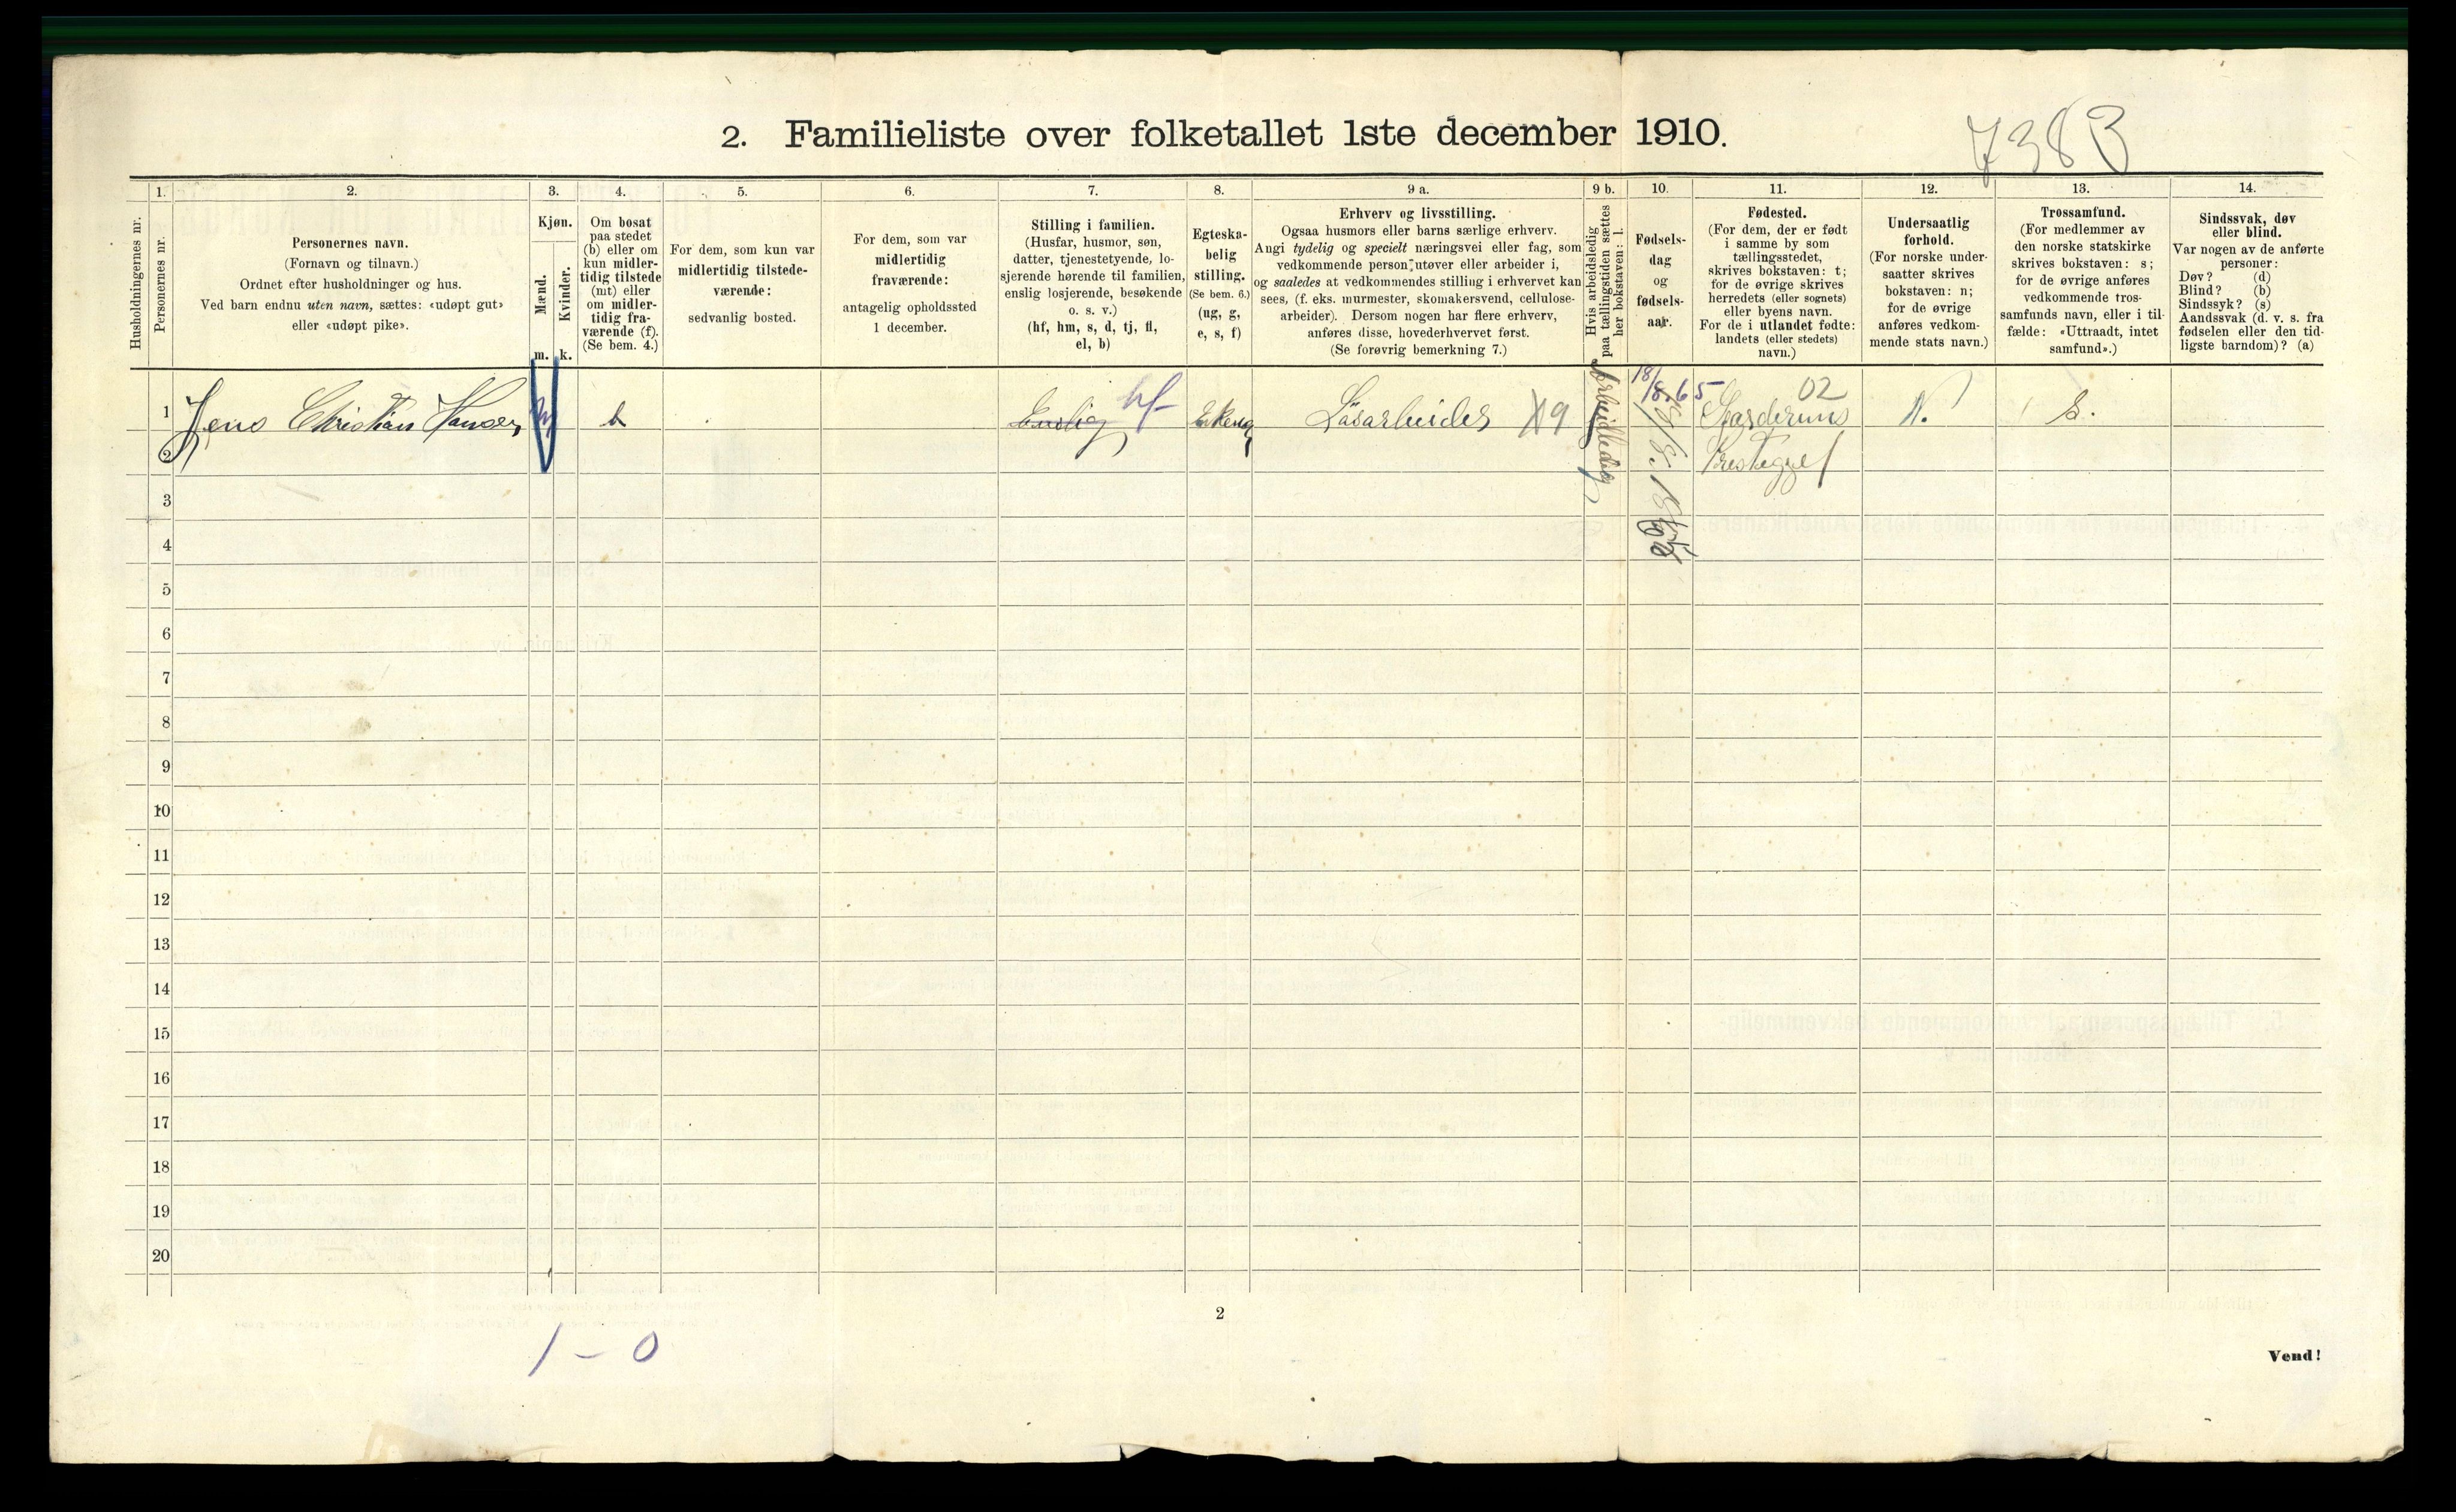 7383
2. Familieliste over folketallet 1ste december 1910.
1. 2. 3. 4. 5. 6. 7. 8. 9 a. 9 b. 10. 11. 12. 13. 14.
Husholdningernes nr.
Personernes nr.
Personernes navn.
(Fornavn og tilnavn.)
Ordnet efter husholdninger og hus.
Ved barn endnu uten navn, sættes: «udøpt gut»
eller «udøpt pike».
Kjøn.
Mænd.
Kvinder.
m. k.
Om bosat
paa stedet
(b) eller om
kun midler-
tidig tilstede
(mt) eller
om midler-
tidig fra-
værende (f).
(Se bem. 4.)
For dem, som kun var
midlertidig tilstede-
værende:
sedvanlig bosted.
For dem, som var
midlertidig
fraværende:
antagelig opholdssted
1 december.
Stilling i familien.
(Husfar, husmor, søn,
datter, tjenestetyende, lo-
sjerende hørende til familien,
enslig losjerende, besøkende
o. s. v.)
(hf, hm, s, d, tj, fl,
el, b)
Egteska-
belig
stilling.
(Se bem. 6.)
(ug, g,
e, s, f)
Erhverv og livsstilling.
Ogsaa husmors eller barns særlige erhverv.
Angi tydelig og specielt næringsvei eller fag, som
vedkommende person utøver eller arbeider i,
og saaledes at vedkommendes stilling i erhvervet kan
sees, (f. eks. murmester, skomakersvend, cellulose-
arbeider). Dersom nogen har flere erhverv,
anføres disse, hovederhvervet først.
(Se forøvrig bemerkning 7.)
Hvis arbeidsledig
paa tællingstiden sættes
her bokstaven: l.
Fødsels-
dag
og
fødsels-
aar.
Fødested.
(For dem, der er født
i samme by som
tællingsstedet,
skrives bokstaven: t;
for de øvrige skrives
herredets (eller sognets)
eller byens navn.
For de i utlandet fødte:
landets (eller stedets)
navn.)
Undersaatlig
forhold.
(For norske under-
saatter skrives
bokstaven: n;
for de øvrige
anføres vedkom-
mende stats navn.)
Trossamfund.
(For medlemmer av
den norske statskirke
skrives bokstaven: s;
for de øvrige anføres
vedkommende tros-
samfunds navn, eller i til-
fælde: «Uttraadt, intet
samfund».)
Sindssvak, døv
eller blind.
Var nogen av de anførte
personer:
Døv? (d)
Blind? (b)
Sindssyk? (s)
Aandssvak (d. v. s. fra
fødselen eller den tid-
ligste barndom)? (a)
1 Jens Christian Hansen m b Enslig hf Enkem Løsarbeider X9 Arbeidledig 18/8 65 02 N. S.
2 Prestegjel
3
4
5
6
7
8
9
10
11
12
13
14
15
16
17
18
19
20
2
1 - 0
Vend!